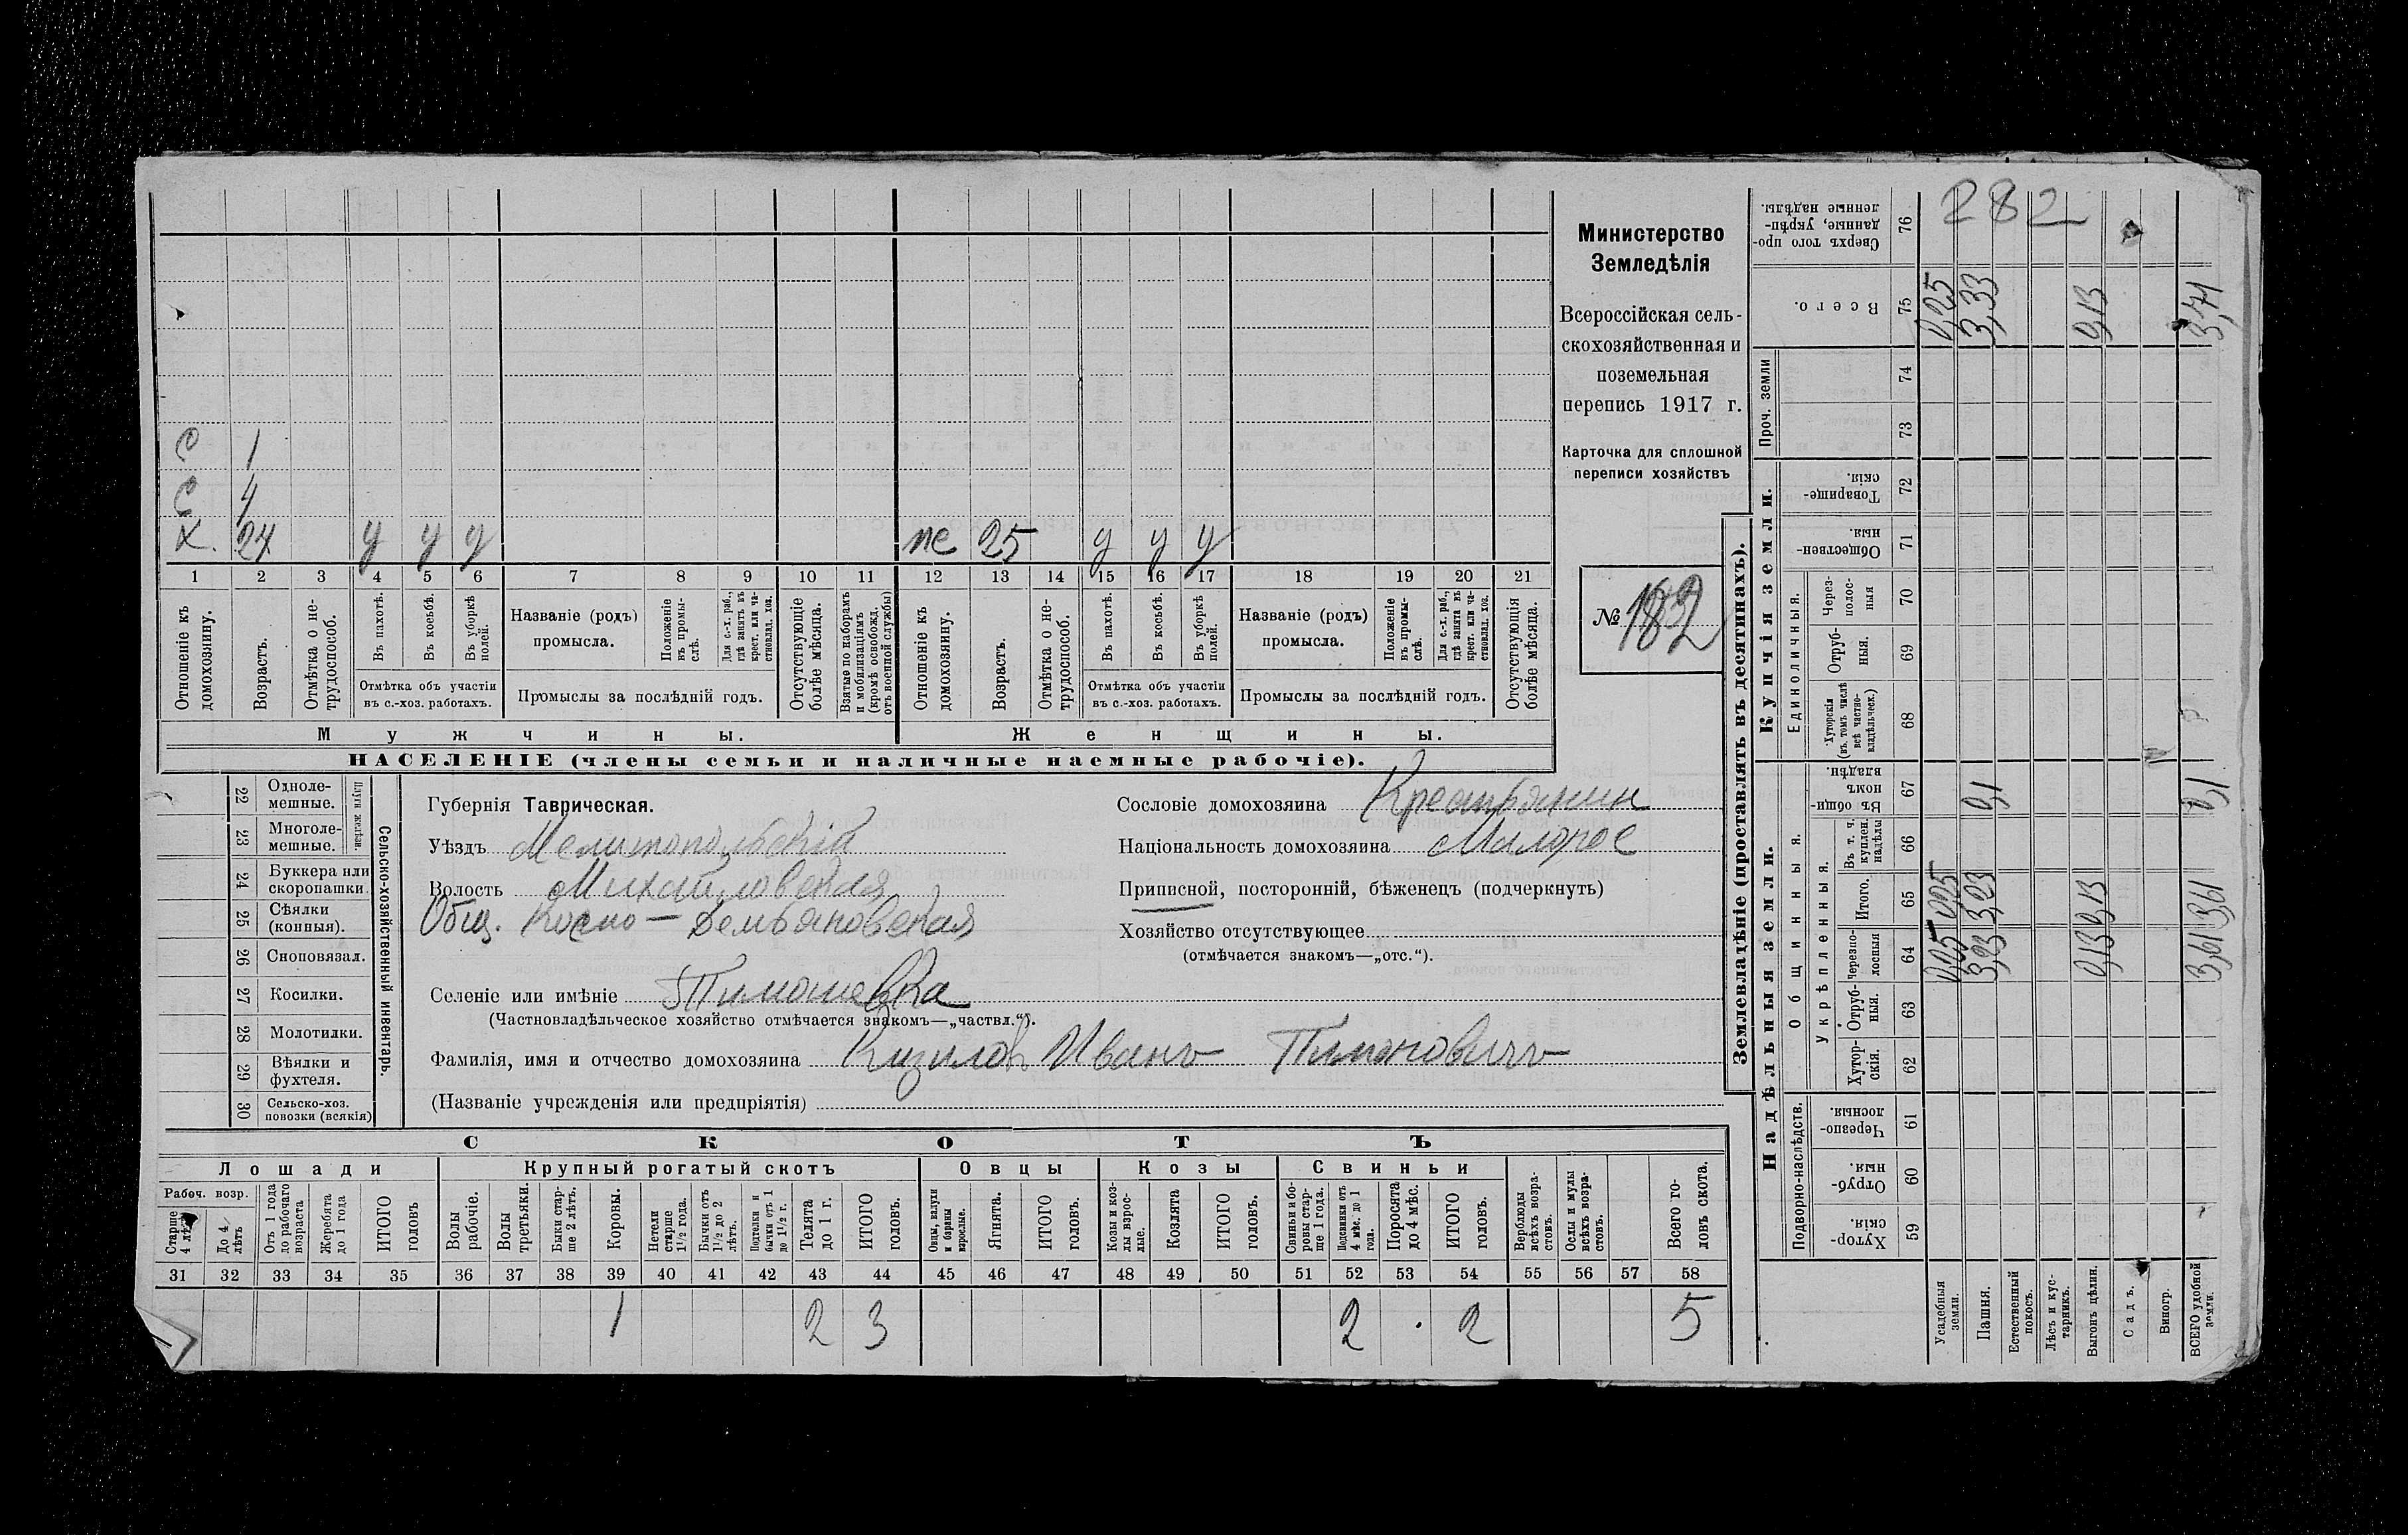 282
Министерство
Земледѣлія
Всероссійская сель-
скохозяйственная и
поземельная
перепись 1917 г.
Карточка для сплошной
переписи хозяйствъ
№ 182
С 1
С 4
Х. 24 у у у же 25 у у у
1 2 3 4 5 6 7 8 9 10 11 12 13 14 15 16 17 18 19 20 21
Отношеніе къ домохозяину.
Возрастъ.
Отмѣтка о не-трудоспособ.
Въ пахотѣ.
Въ косьбѣ.
Въ уборкѣ полей.
Отмѣтка объ участіи
въ с.-хоз. работахъ.
Названіе (родъ)
промысла.
Положеніе въ промы-слѣ.
Для с.-х. раб., гдѣ занятъ въ крест. или ча-стновлад. хоз.
Промыслы за послѣдній годъ.
Отсутствующіе болѣе мѣсяца.
Взятые по наборамъ и мобилизаціямъ (кромѣ освобожд. отъ военной службы)
Отношеніе къ домохозяину.
Возрастъ.
Отмѣтка о не-трудоспособ.
Въ пахотѣ.
Въ косьбѣ.
Въ уборкѣ полей.
Отмѣтка объ участіи
въ с.-хоз. работахъ.
Названіе (родъ)
промысла.
Положеніе въ промы-слѣ.
Для с.-х. раб., гдѣ занята въ крест. или ча-стновлад. хоз.
Промыслы за послѣдній годъ.
Отсутствующія болѣе мѣсяца.
Мужчины. Женщины.
НАСЕЛЕНІЕ (члены семьи и наличные наемные рабочіе).
22 Одноле-мешные.
23 Многоле-мешные.
Плуги желѣзн.
24 Буккера или скоропашки.
25 Сѣялки (конныя).
26 Сноповязал.
27 Косилки.
28 Молотилки.
29 Вѣялки и фухтеля.
30 Сельско-хоз. повозки (всякія)
Сельско-хозяйственный инвентарь.
Губернія Таврическая.
Уѣздъ Мелитопольскій
Волость Михайловская
Общ. Космо-Демьяновская
Селеніе или имѣніе Тимошевка
(Частновладѣльческое хозяйство отмѣчается знакомъ—„частвл.“).
Фамилія, имя и отчество домохозяина Кизилов Иванъ Тимоновичъ
(Названіе учрежденія или предпріятія)
Сословіе домохозяина Крестьянин
Національность домохозяина Малорос
Приписной, посторонній, бѣженецъ (подчеркнуть)
Хозяйство отсутствующее
(отмѣчается знакомъ—„отс.“).
СКОТЪ
Лошади Крупный рогатый скотъ Овцы Козы Свиньи
Рабоч. возр.
Старше 4 лѣтъ
До 4 лѣтъ
Отъ 1 года до рабочаго возраста
Жеребята до 1 года
ИТОГО головъ
Волы рабочіе.
Волы третьяки.
Быки стар-ше 2 лѣтъ.
Коровы.
Нетели старше 1½ года.
Бычки отъ 1½ до 2 лѣтъ.
Подтелки и бычки отъ 1 до 1½ г.
Телята до 1 г.
ИТОГО головъ.
Овцы, валухи и бараны взрослые.
Ягнята.
ИТОГО головъ.
Козы и коз-лы взрос-лые.
Козлята
ИТОГО головъ.
Свиньи и бо-ровы стар-ше 1 года.
Подсвинки отъ 4 мѣс. до 1 года.
Поросята до 4 мѣс.
ИТОГО головъ.
Верблюды всѣхъ возра-стовъ.
Ослы и мулы всѣхъ возра-стовъ.
Всего го-ловъ скота.
31 32 33 34 35 36 37 38 39 40 41 42 43 44 45 46 47 48 49 50 51 52 53 54 55 56 57 58
1 2 3 2 · 2 5
Землевладѣніе (проставлять въ десятинахъ).
Надѣльныя земли. Купчія земли.
Подворно-наслѣдств.
Общинныя.
Укрѣпленныя.
Единоличныя.
Проч. земли
Сверхъ того про-данные, укрѣп-ленные надѣлы. 76
Всего. 75 0,25 3,33 0,13 3,71
74
73
Товарище-скія. 72
Обществен-ныя. 71
Через-полос-ныя 70
Отруб-ныя. 69
Хуторскія (въ томъ числѣ всѣ частно-владѣльческ.) 68
Въ общин-номъ владѣн. 67 0,1 0,1
Въ т. ч. куплен. надѣлы 66
Итого. 65 0,25 3,23 0,13 3,61
Черезпо-лосныя 64 0,25 3,23 0,13 3,61
Отруб-ныя. 63
Хутор-скія. 62
Черезпо-лосныя. 61
Отруб-ныя. 60
Хутор-скія. 59
Усадебныя земли.
Пашня.
Естественный покосъ.
Лѣсъ и кус-тарникъ.
Выгонъ цѣлин.
Садъ.
Виногр.
ВСЕГО удобной земли.